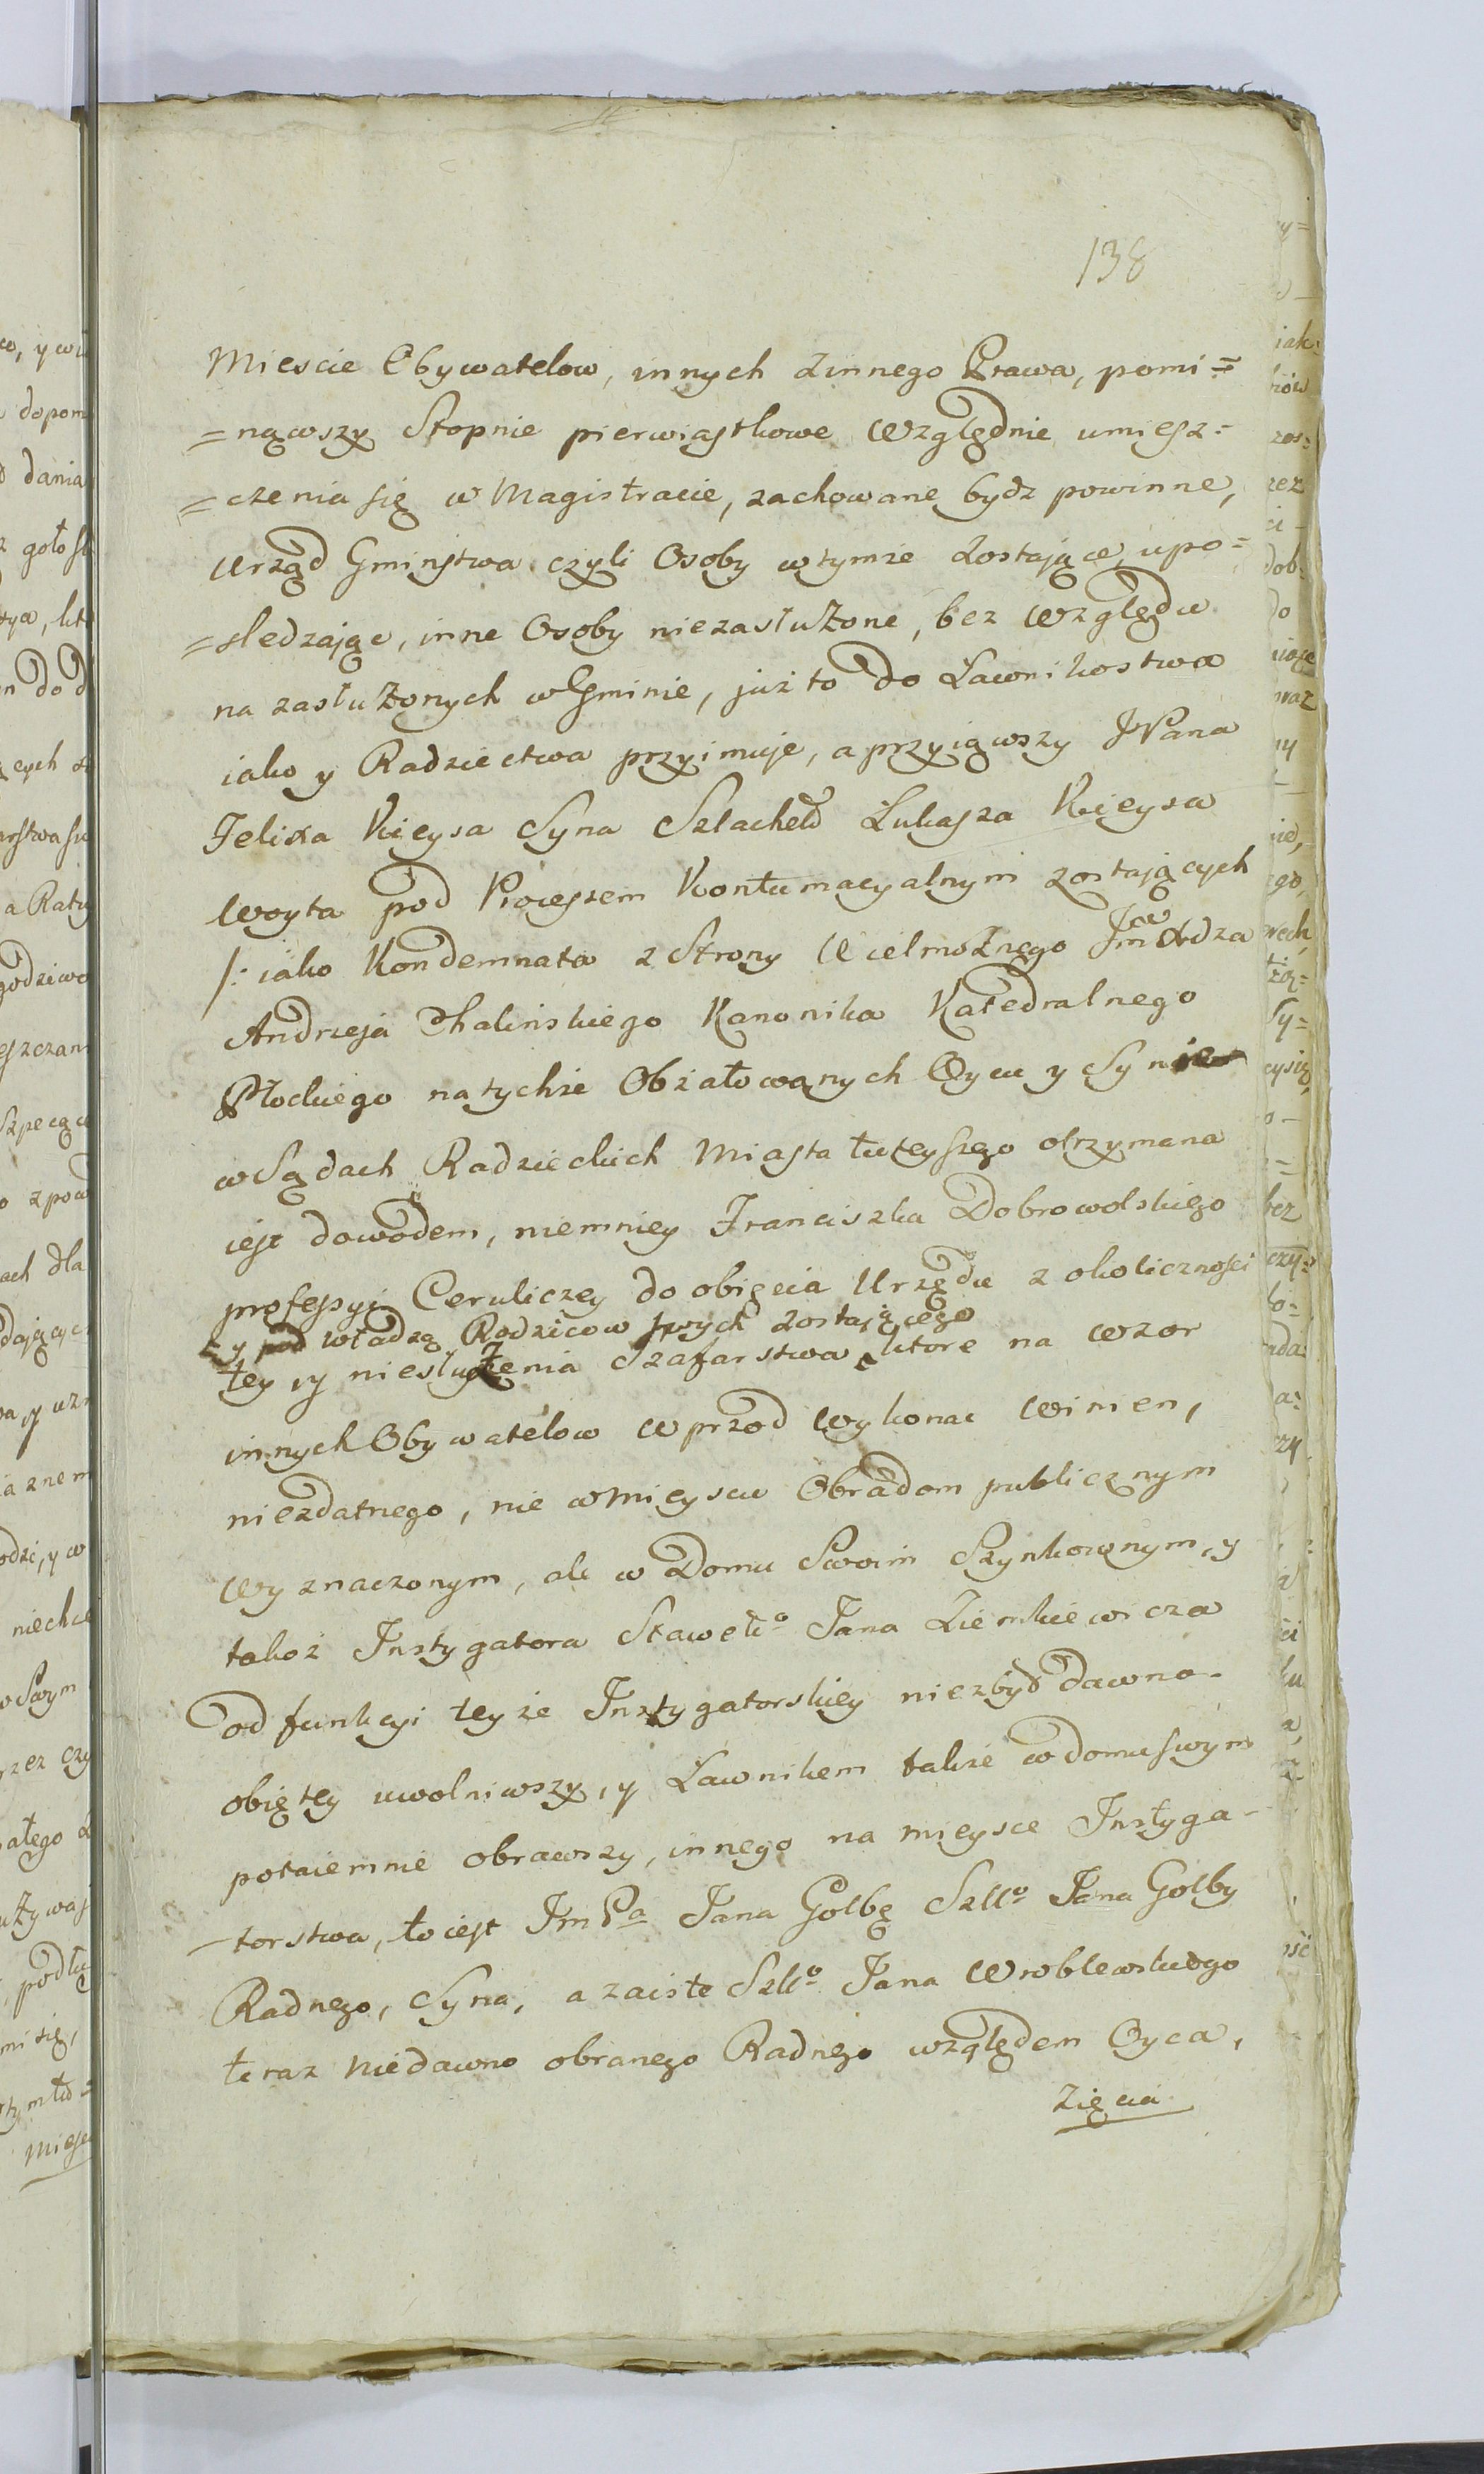 138
Miescie Obywatelow, innych zinnego Prawa, pomi=
=nąwszy Stopnie pierwiastkowe Względnie umiesz=
=czenia się w Magistracie, zachowane bydz powinne,
Urząd Gminstwa czyli Osoby wtymże Zostające, upo=
=sledzając, inne Osoby niezasłużone, bez Względu
na zasłużonych w Gminie, już to do Ławnikostwa
iako y Radziectwa przyimuje, a przyiąwszy JPana
Felixa Kieysa Syna Szlachet° Łukasza Kieysa
Woyta pod Processem Kontumacyalnym zostaiących
/: iako Kondemnata z Strony Wielmożnego Jm Xiędza
Andrzeja Thalinskiego Kanonika Katedralnego
Płockiego na tychże Obżałowanych Oycu y Synie
w Sądach Radzieckich Miasta tuteyszego otrzymana
iest dowodem, niemniey Franciszka Dobrowolskiego
professyi Ceruliczey do obięcia Urzędu z okoliczności
y pod władzą Rodzicow swych zostaiącego
tey, y niesłużenia Szafarstwa, ktore na Wzor
innych Obywatelow wprzod Wykonac Winien,
niezdatnego, nie w Mieyscu Obradom publicznym
Wyznaczonym, ale w Domu Swoim Szynkownym, y
takoż Instygatora Stawet° Jana Ziemkiewicza
od funkcyi teyże Instygatorskiey niezbyd dawno
obiętey uwolniwszy, y Ławnikem także w domu swym
potaiemnie obrawszy, innego na mieysce Instyga-
-torstwa, to iest Jm Pa Jana Gołbę Szll° Jana Gołby
Radnego, Syna, a zaiste Szll° Jana Wroblewskiego
teraz niedawno obranego Radnego względem Oyca,
Zięcia